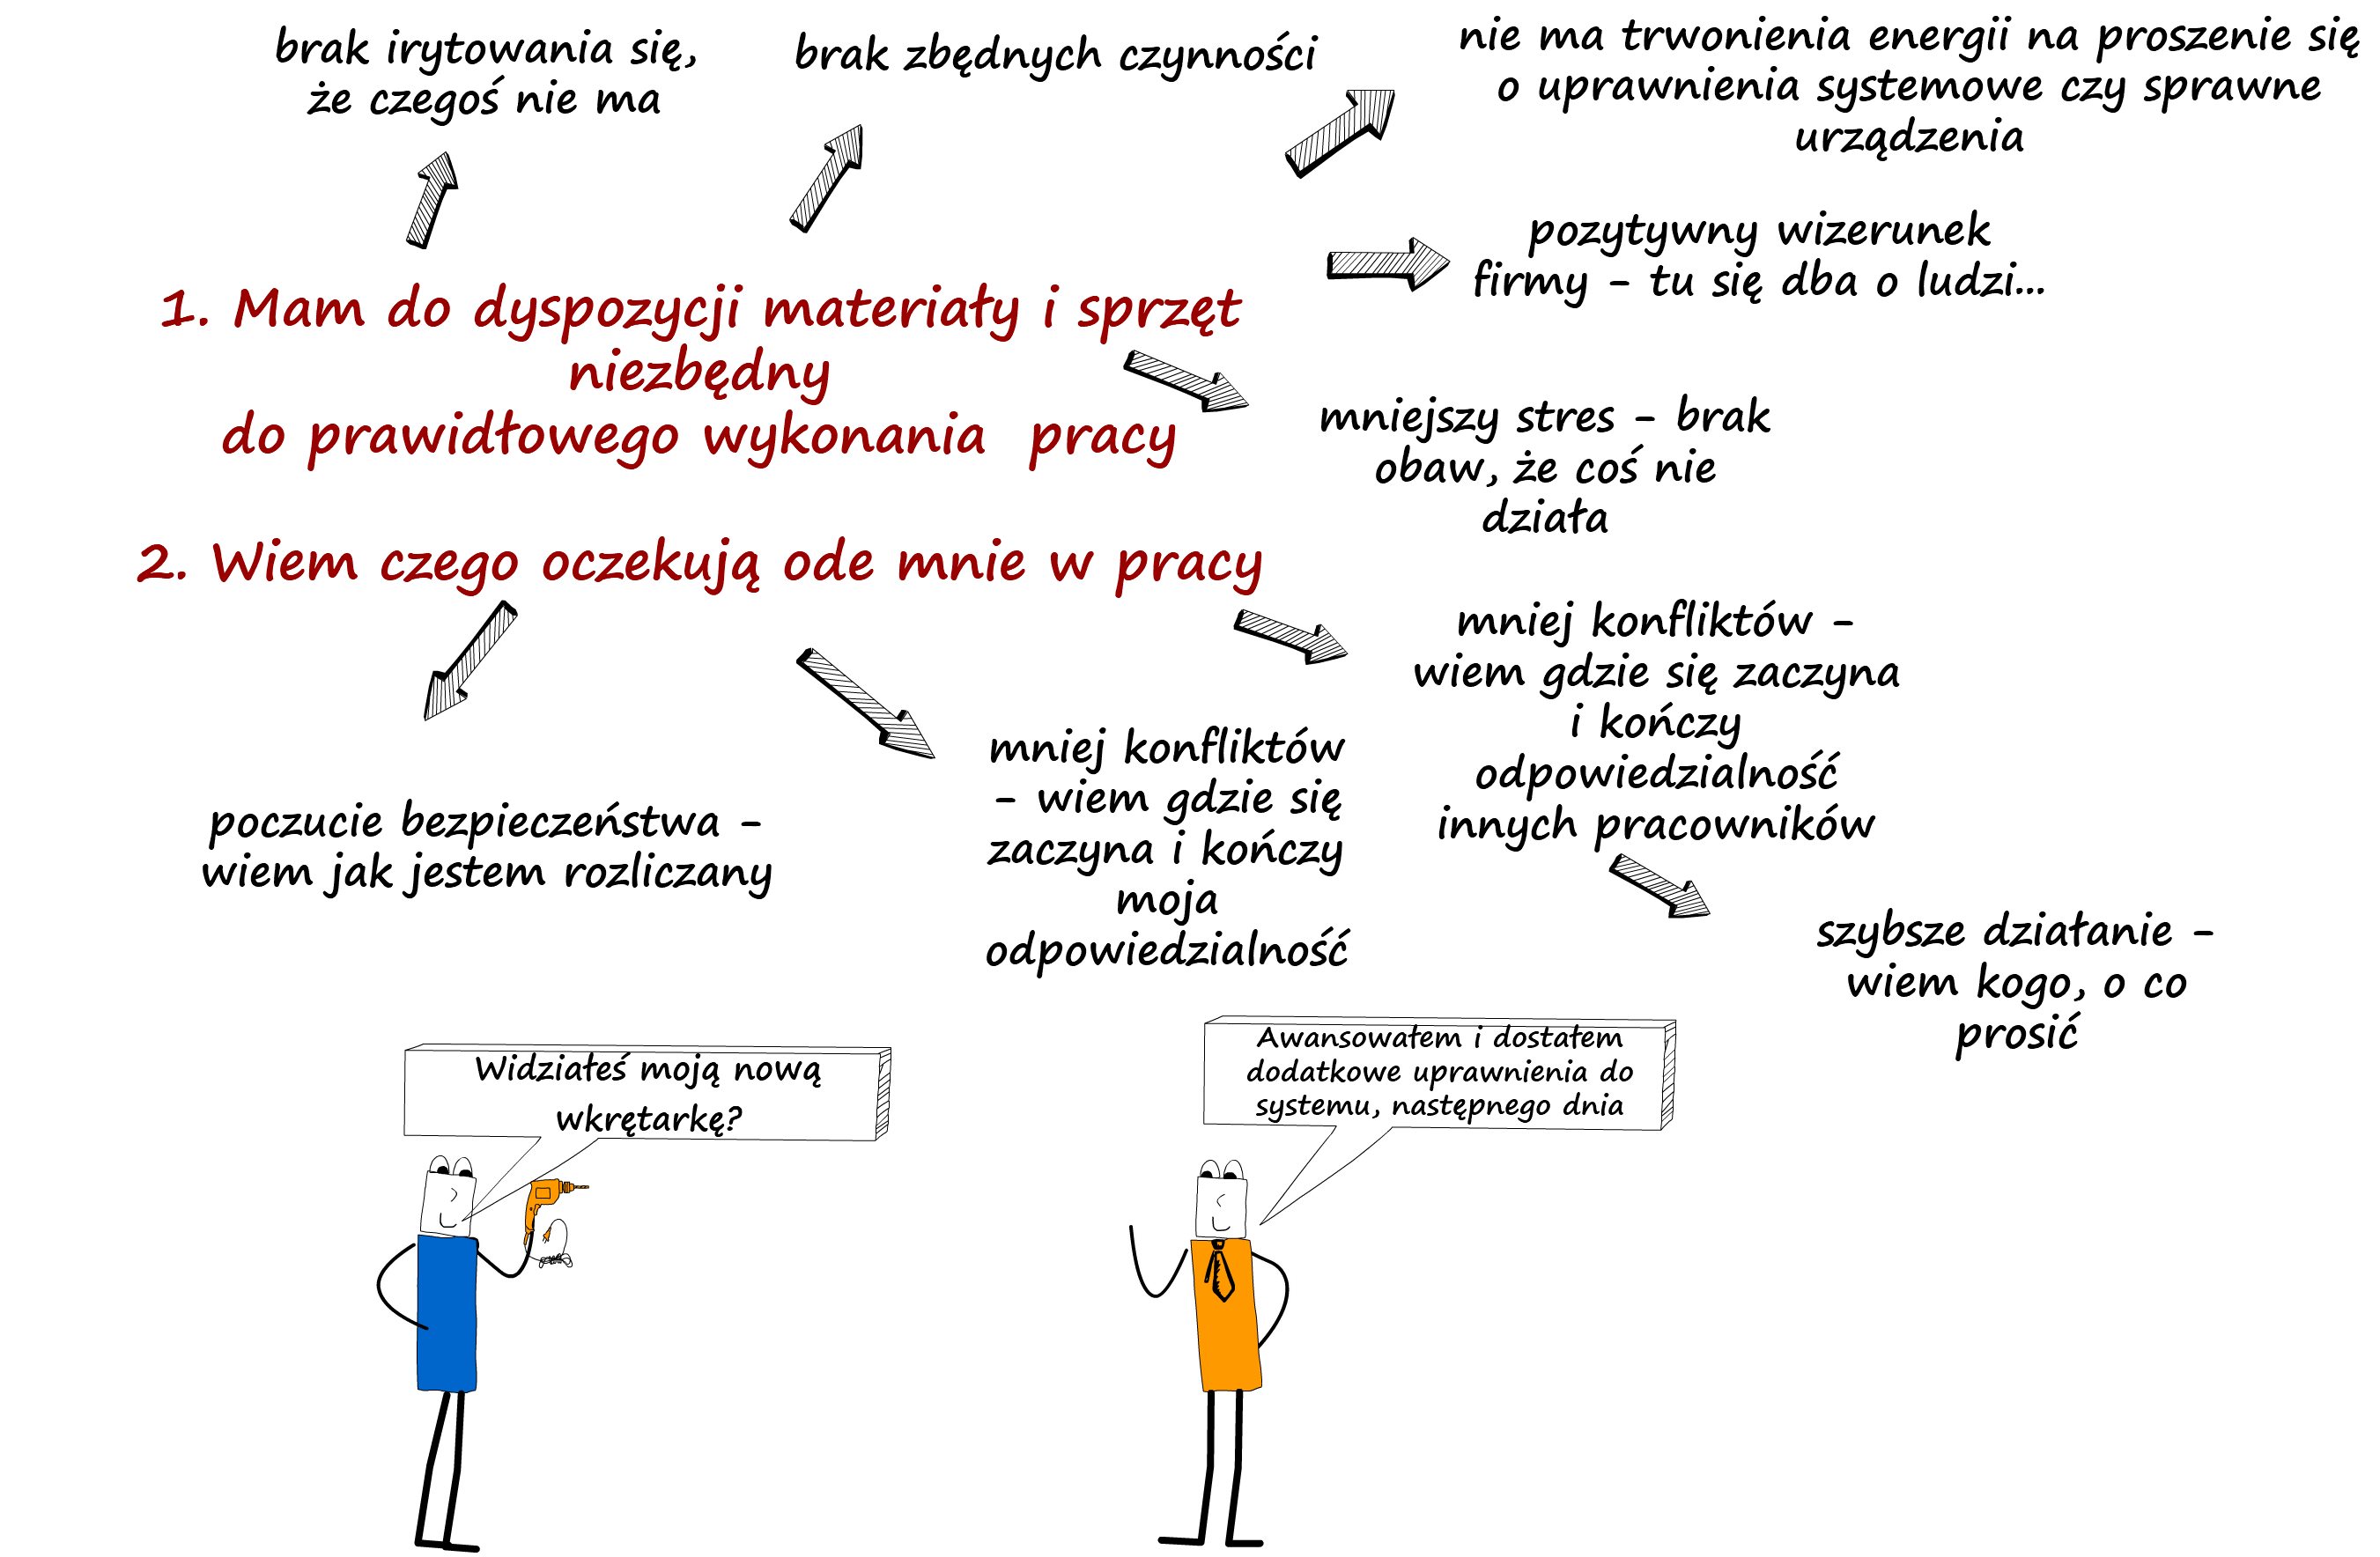 brak irytowania się,
że czegoś nie ma
brak zbędnych czynności
nie ma trwonienia energii na proszenie się
o uprawnienia systemowe czy sprawne
urządzenia
pozytywny wizerunek
firmy - tu się dba o ludzi...
1. Mam do dyspozycji materiały i sprzęt
niezbędny
do prawidłowego wykonania pracy
mniejszy stres - brak
obaw, że coś nie
działa
2. Wiem czego oczekują ode mnie w pracy
mniej konfliktów -
wiem gdzie się zaczyna
i kończy
odpowiedzialność
innych pracowników
mniej konfliktów
- wiem gdzie się
zaczyna i kończy
moja
odpowiedzialność
poczucie bezpieczeństwa -
wiem jak jestem rozliczany
szybsze działanie -
wiem kogo, o co
prosić
Widziałeś moją nową
wkrętarkę?
Awansowałem i dostałem
dodatkowe uprawnienia do
systemu, następnego dnia